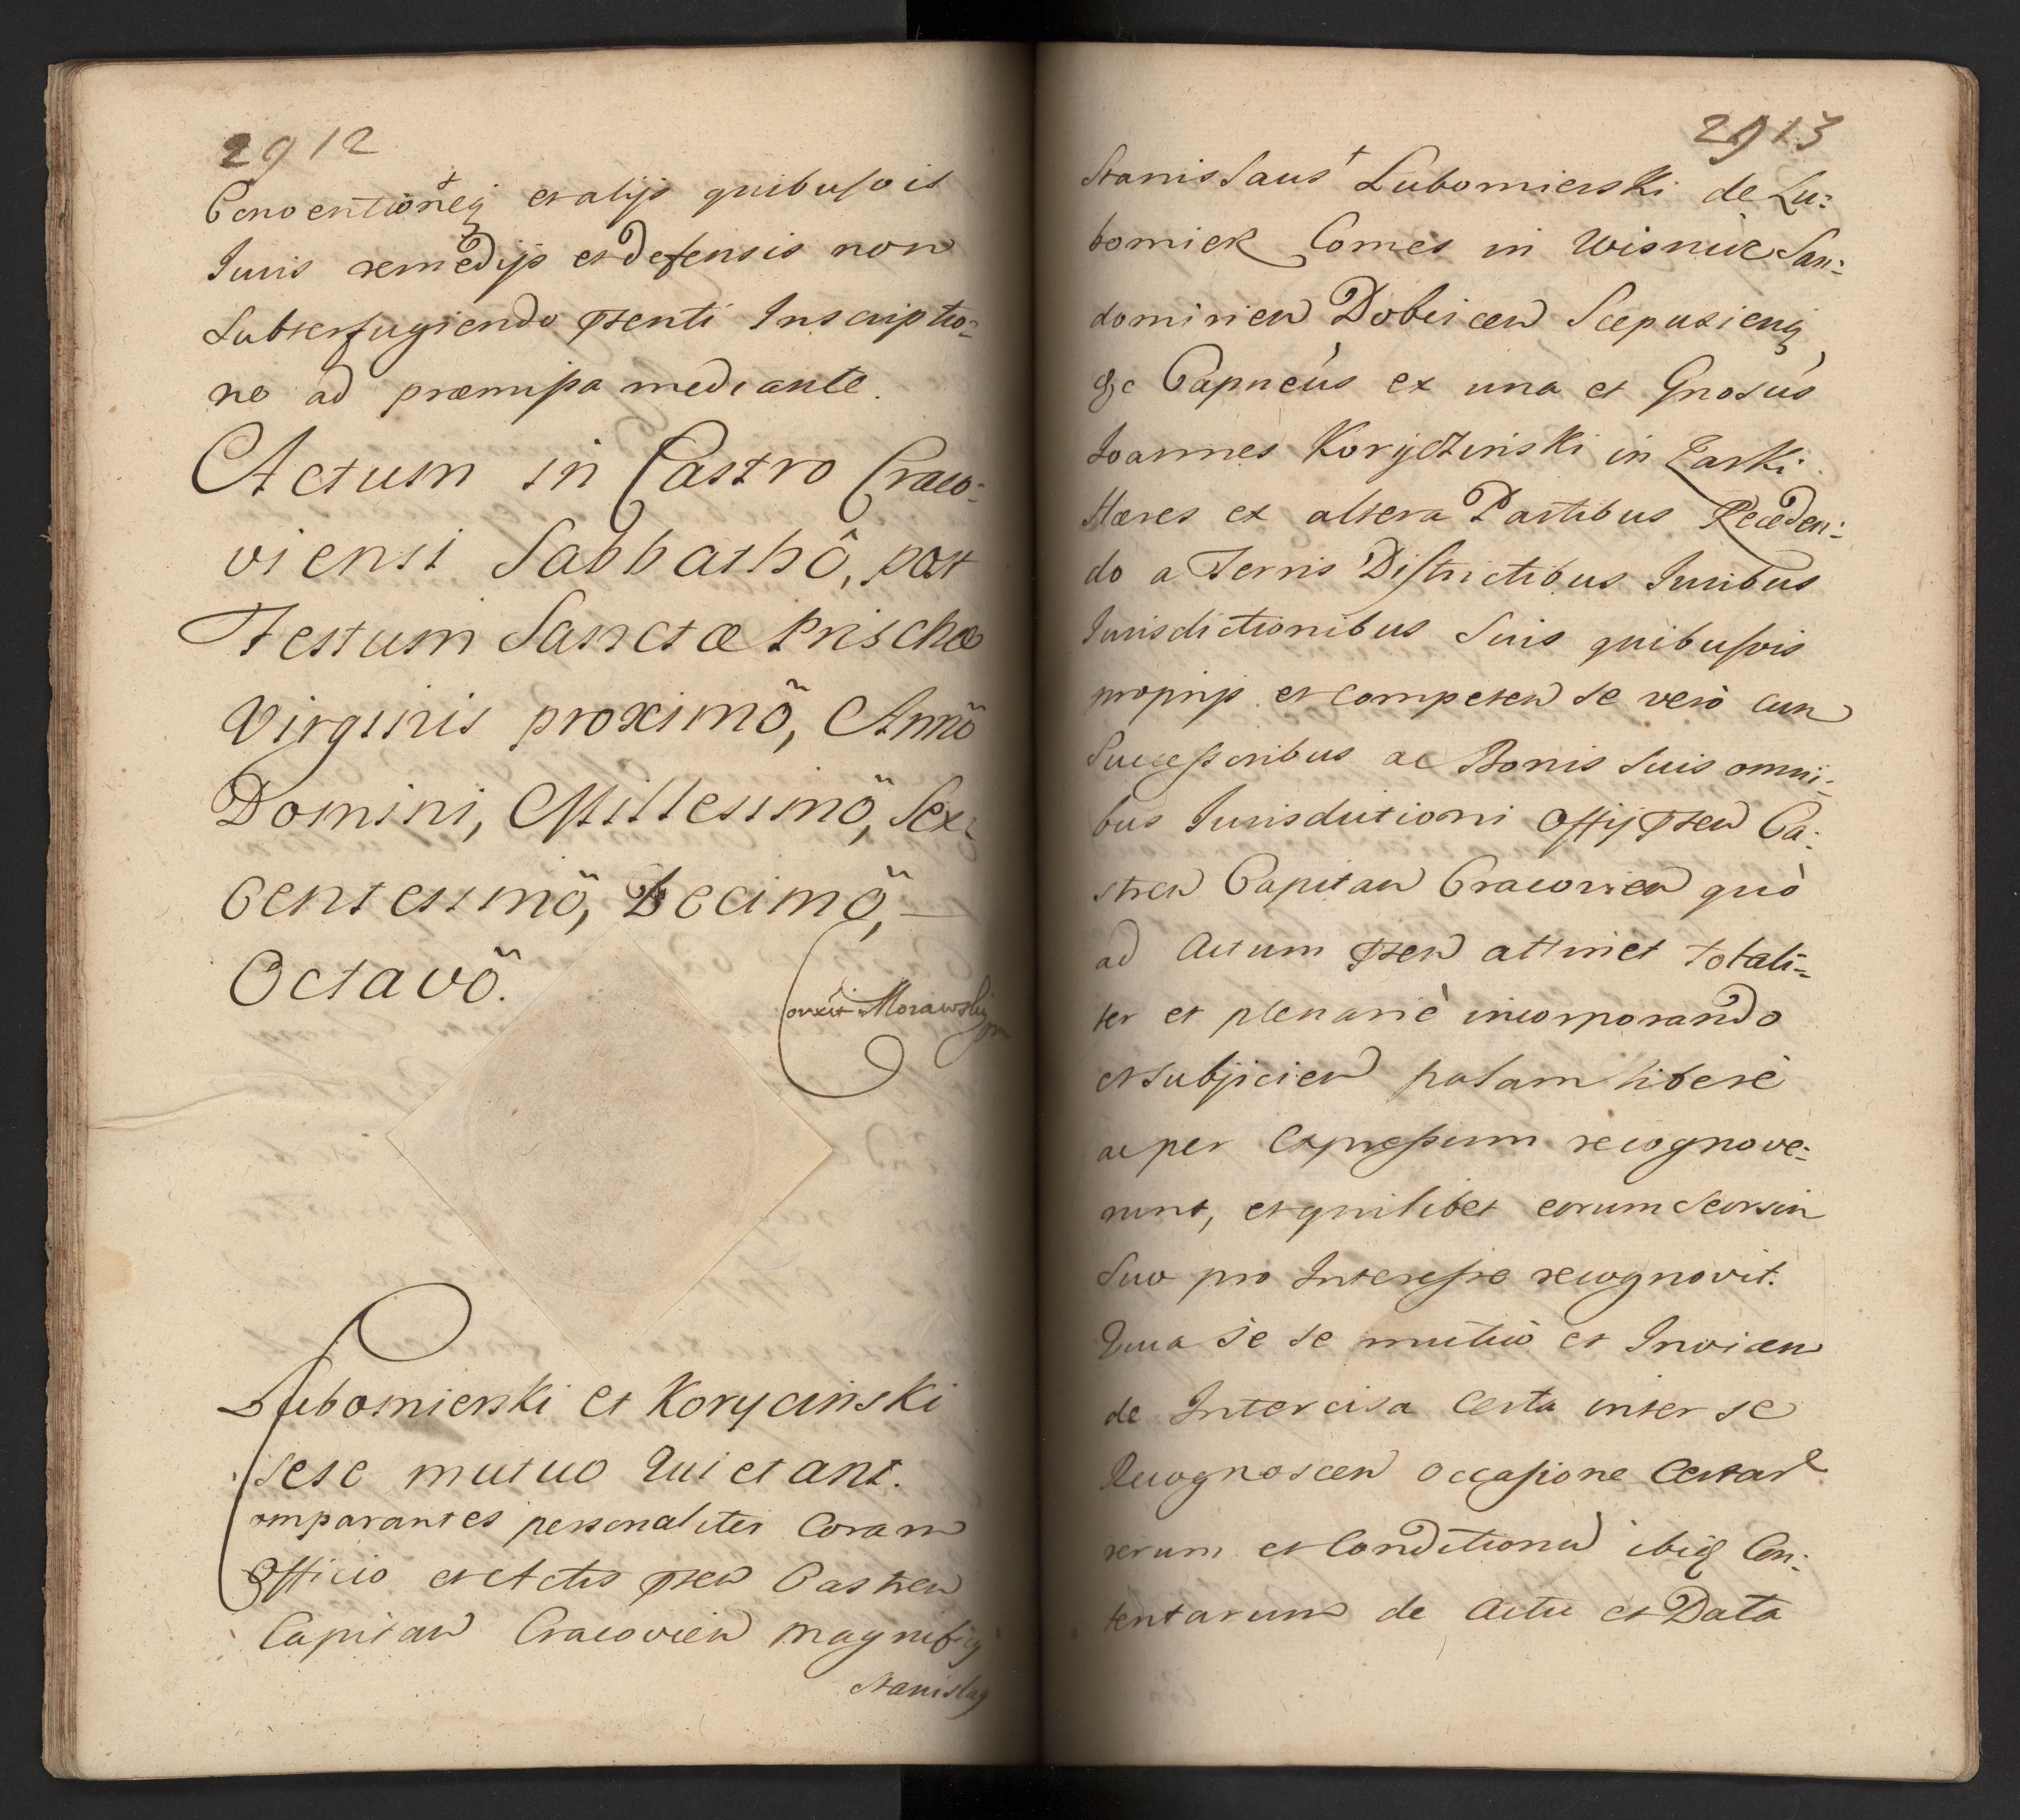 2912
Conventioneq et alijs quibusvis
Iuris remedijs et defensis non
Subterfugiendo pntenti Inscriptio=
ne ad præmissa mediante.
Actum in Castro Craco=
viensi Sabbathô, post
Festum Sanctæ Prischæ
Virginis proximô, Annô
Domini, Millesimô, Sex=
Centesimô, Decimô, –
Octavô.
Corrxit Morawski
Lubomierski et Koryciński
sese mutuo Quietant.
Comparantes personaliter Coram
Officio et Actis pnten Castren
Capitan Cracovien magnificq
Stanislaq
2913
Stanislaus Lubomierski de Lu=
bomierz Comes in Wisnicz San=
domirien Dobcicen Scepusienq
&c Capneus ex una et Gnosus
Joannes Koryczinski in Żarki
Hæres ex altera Partibus Receden=
do a Terris Districtibus Iuribus
Iurisdictionibus Suis quibusvis
proprijs et competen se verò cum
Successoribus ac Bonis Suis omni=
bus Iurisdictioni Officij pnten Ca=
stren Capitan Cracovien quò
ad Actum pnten attinet totali=
ter et plenariè incorporando
et subijcien palam liberè
ac per Expressum recognove=
runt, et quilibet eorum Seorsim
Suo pro Interesse recognovit.
Quia se se mutuò et Invicem
de Intercisa Certa inter se
Recognoscen occasione Certar
rerum et Conditionu ibiq Con=
tentarum de Actu et Data